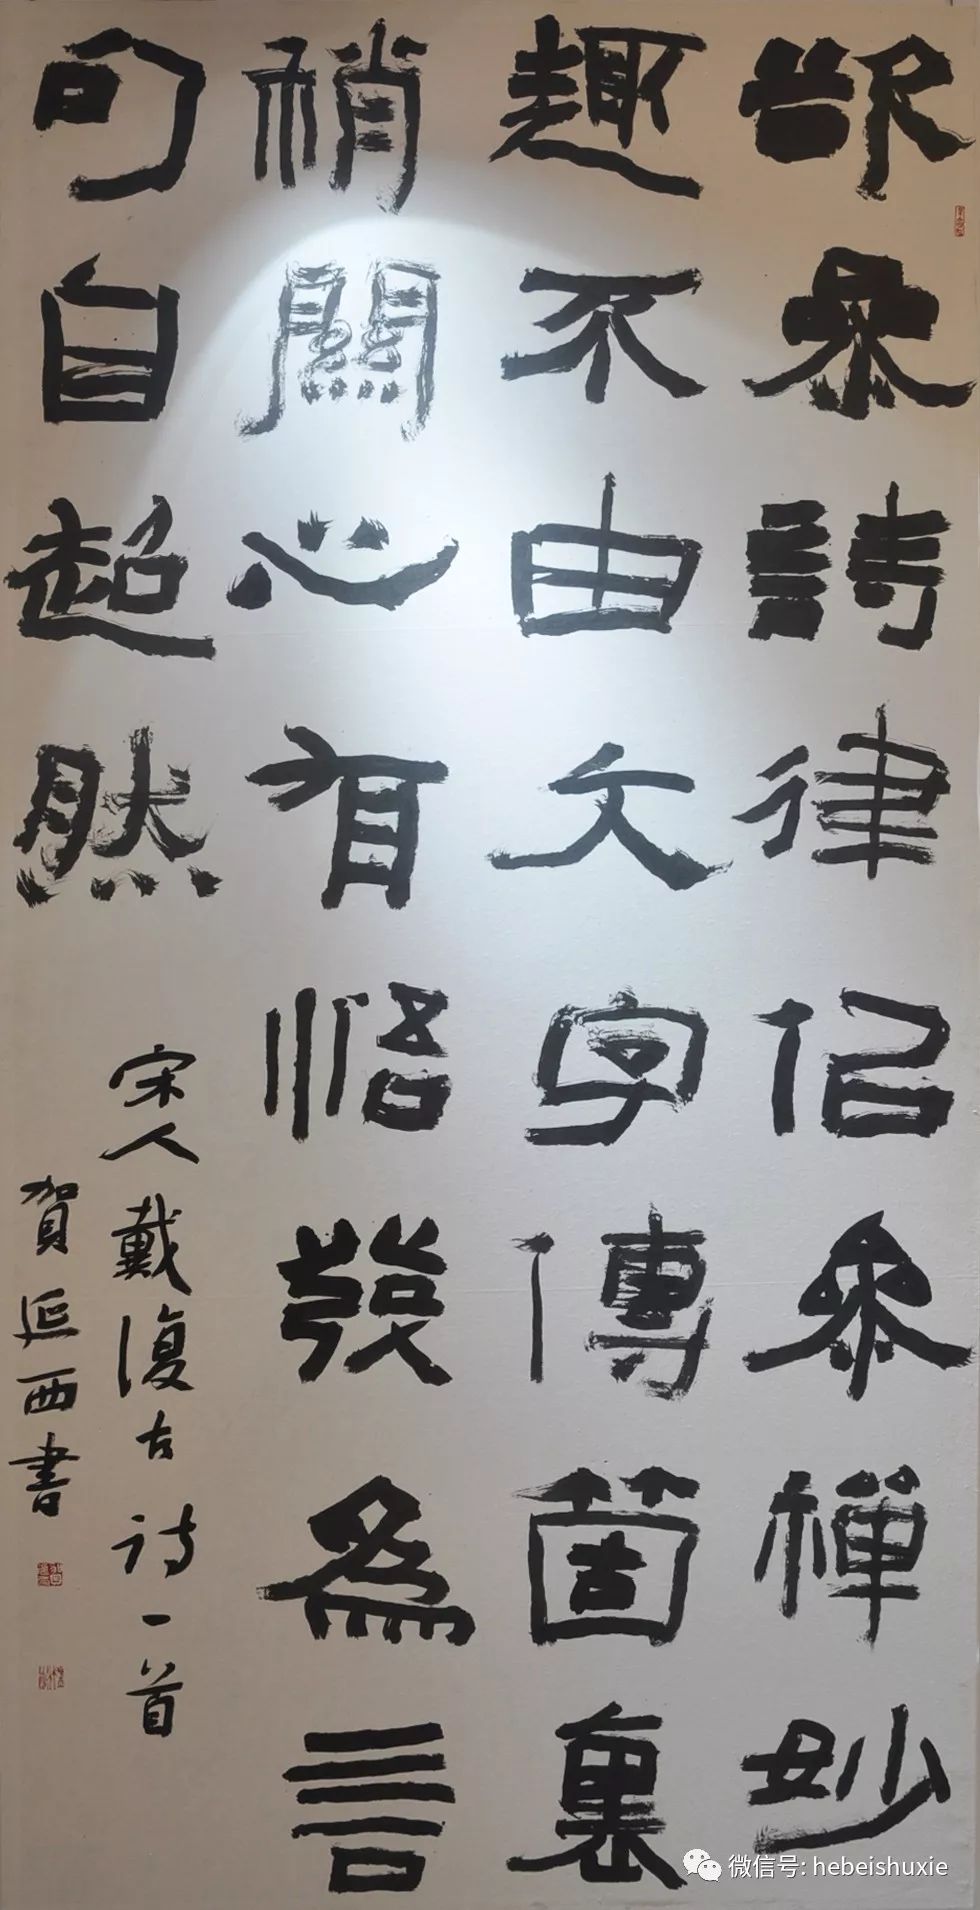 欲參詩律佀參禪妙
趣不由文字傳箇裏
稍關心有悟發爲言
句自超然
宋人戴復古诗一首
賀延西書
微信号: hebeishuxie